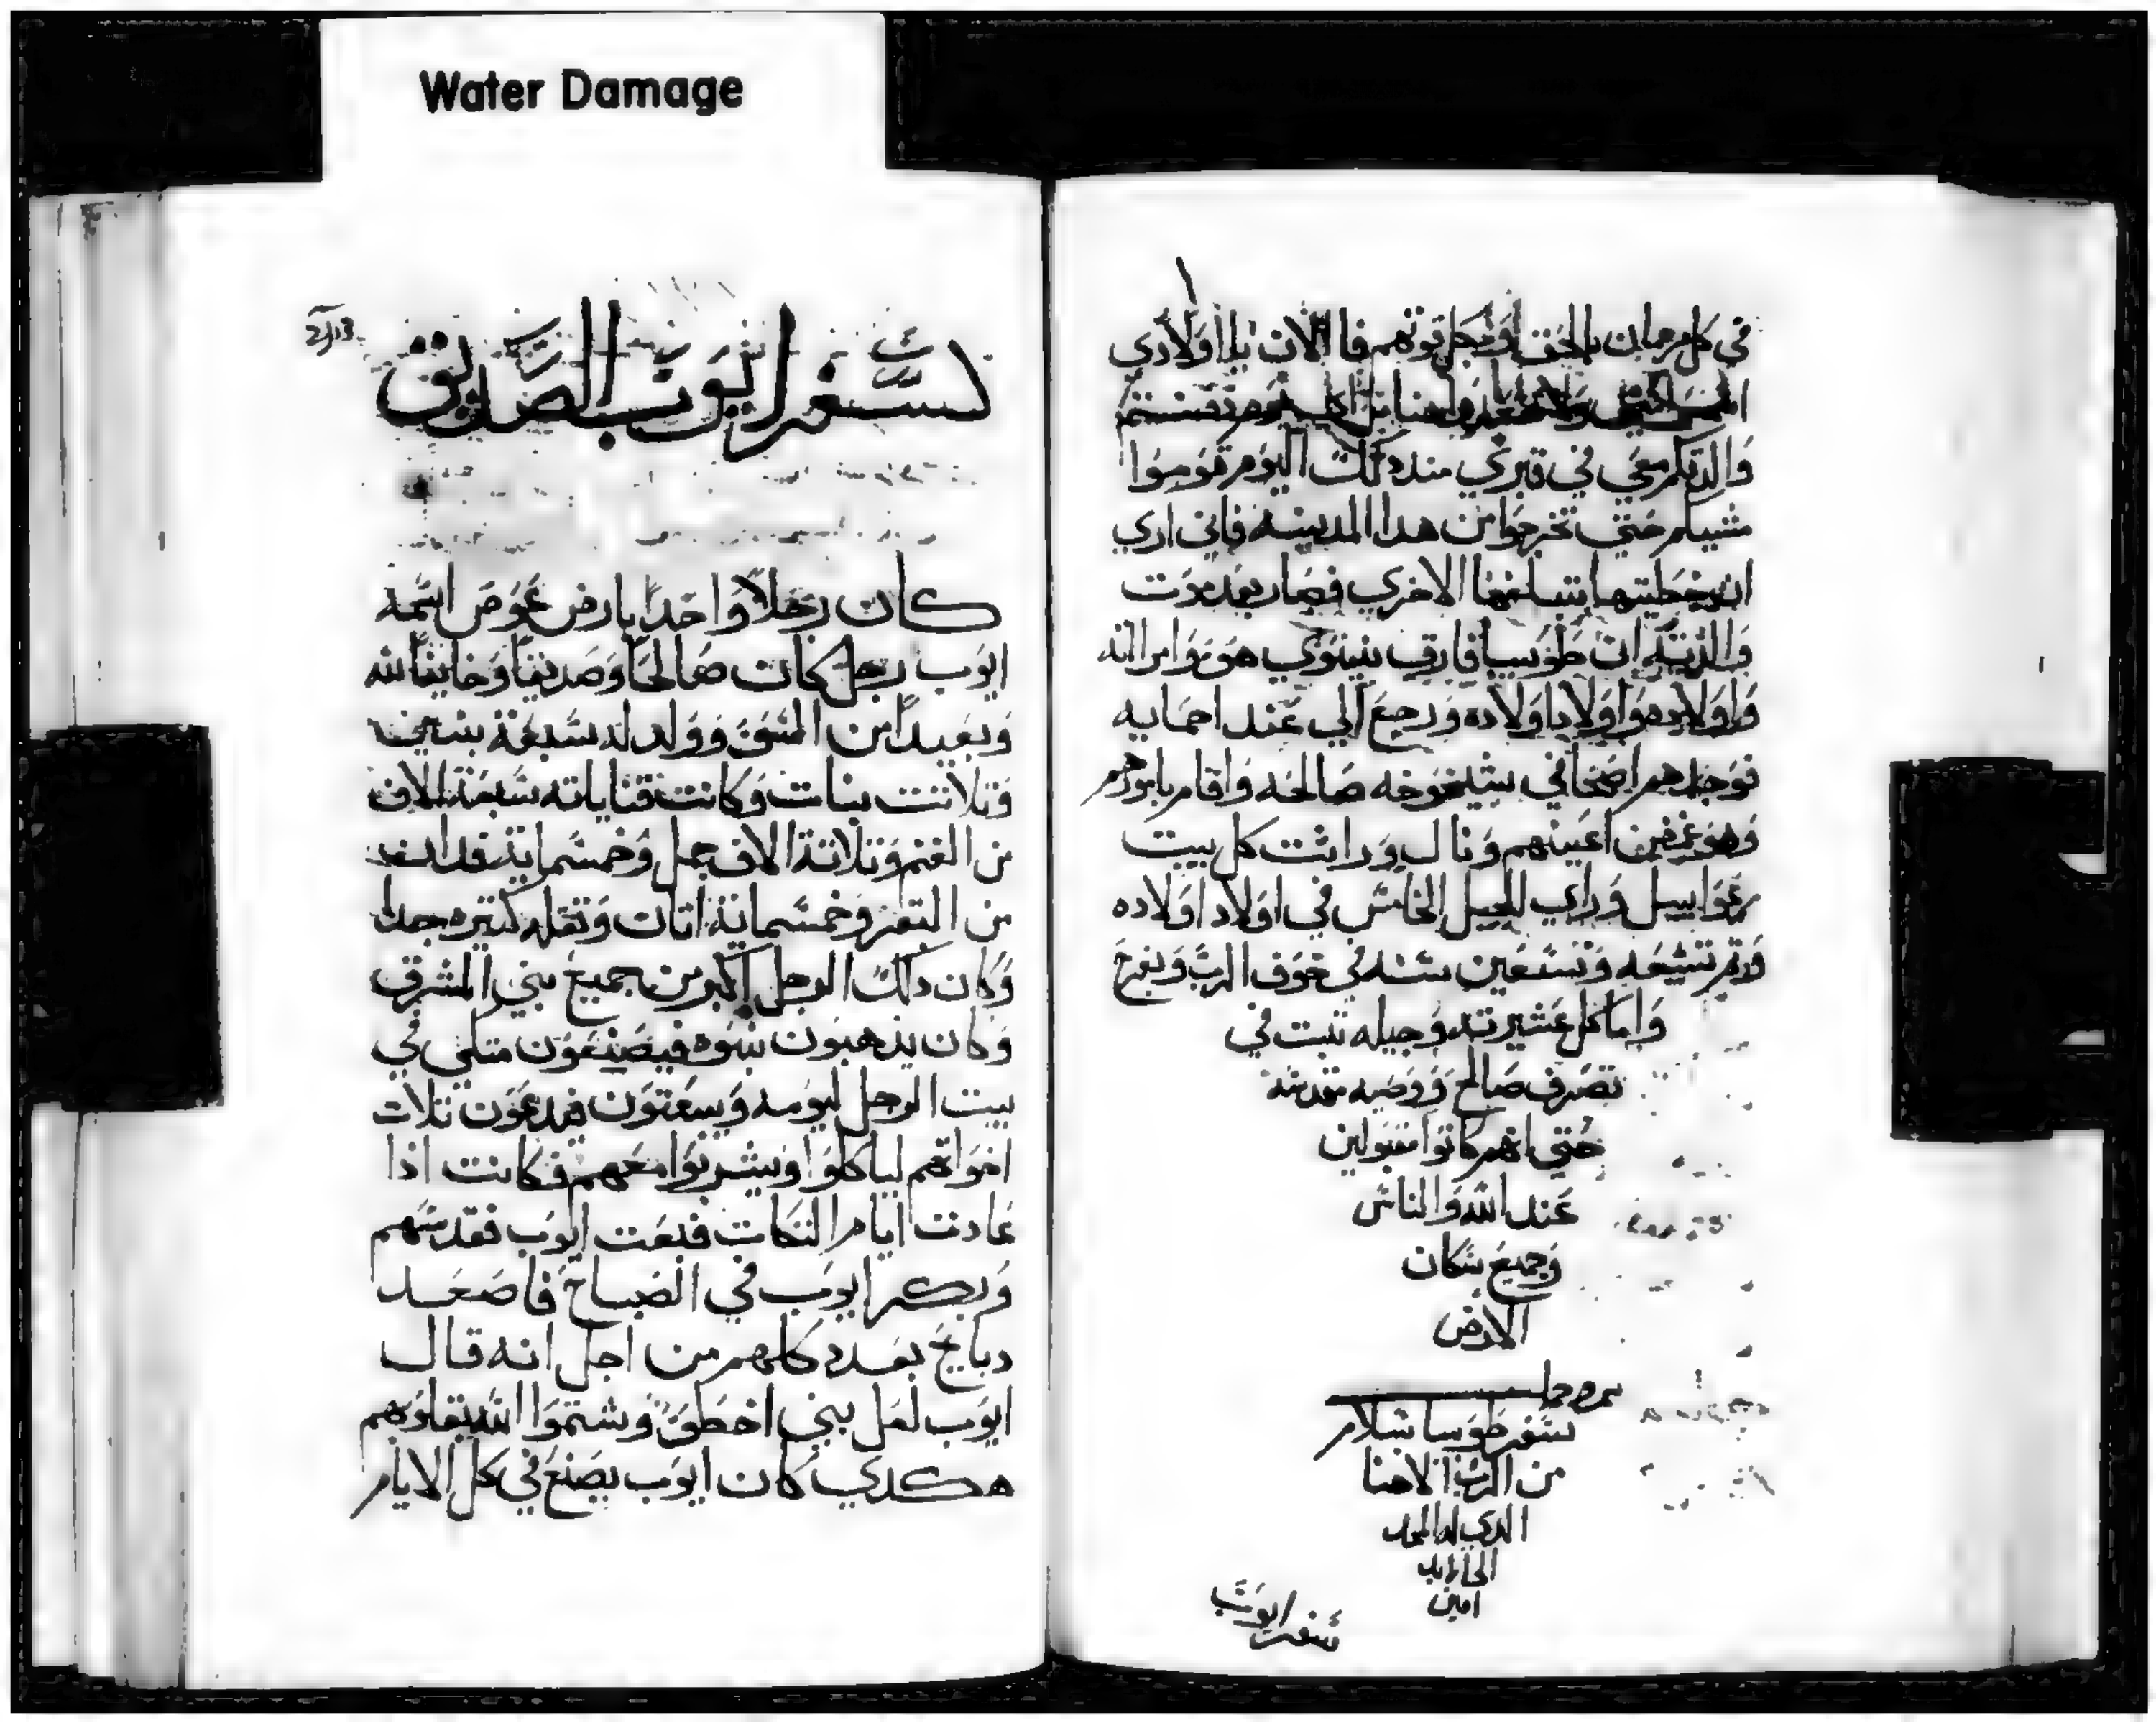 Water Damage
في كل زمان بالحق وبكل قوتهم فا الان يا اولادي
والدتكم معي في قبري مند دلك اليوم قوموا
مشيكم حتي تخرجوا من هدا المدينه فاني اري
ان خطيتها الاخري فصار بعد موت
والدته ان طوسيا فارق نينوي هو وامراته
واولاده واولاد اولاده ورجع الي عند احمايه
فوجدهم اصحاني بشيخوخه صالحه واقام بامورهم
وهو غمض اعينهم ونال وراثت كل بيت
رعواييل وراي الجيل الخامس في اولاد اولاده
وتم تسعه وتسعين سنه في خوف الرب وبفرح
واما كل عشيرته وجيله تبت في
تصرف صالح
حتي انهم كانوا مقبولين
عند الله والناس
وجميع سكان
الارض
سفر طوسيا سلام
من الرب الاهنا
الدي له المجد
الي الابد
امين
سفر ايوب
213
سفر ايوب الصديق
كان رجلا واحدا بارض عوص اسمه
ايوب رجل كان صالحا وصديقا وخايفا لله
وبعيدا من السو وولد له سبعة بنين
وتلاتت بنات وكانت قناياته سبعة الاف
من الغنم وتلاتة الاف جمل وخمسماية فدان
من البقر وخمسماية اتان وتقله كتيره جدا
وكان دلك الرجل اكبر من جميع بني المشرق
وكان يدهبون بنوه فيصنعون متكي في
بيت الرجل ليومه ويبعتون فيدعون تلات
اخواتهم لياكلوا ويشربوا معهم فكانت ادا
عادت ايام التكات فبعت ايوب فقدسهم
وبكر ايوب في الصباح فاصعد
دبايح بعدد كلهم من اجل انه قال
ايوب لعل بني اخطوا وشتموا الله بقلوبهم
هكدي كان ايوب يصنع في كل الايام